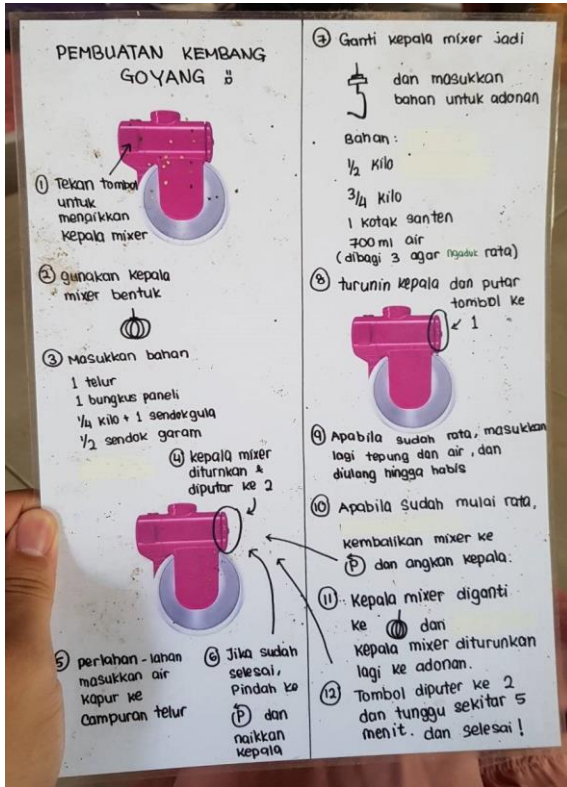 PEMBUATAN KEMBANG
GOYANG :)
① Tekan tombol
untuk
menaikkan
kepala mixer
② gunakan kepala
mixer bentuk
③ Masukkan bahan
1 telur
1 bungkus paneli
1/4 kilo + 1 sendok gula
1/2 sendok garam
④ kepala mixer
diturnkan &
diputar ke 2
⑤ perlahan-lahan
masukkan air
kapur ke
campuran telur
⑥ Jika sudah
selesai,
Pindah ke
Ⓟ dan
naikkan
kepala
⑦ Ganti kepala mixer jadi
dan masukkan
bahan untuk adonan
Bahan :
1/2 kilo
3/4 kilo
1 kotak santen
700 ml air
(dibagi 3 agar ngaduk rata)
⑧ turunin kepala dan putar
tombol ke
1
⑨ Apabila sudah rata, masukkan
lagi tepung dan air, dan
diulang hingga habis
⑩ Apabila sudah mulai rata,
kembalikan mixer ke
Ⓟ dan angkan kepala.
⑪ Kepala mixer diganti
ke dan
kepala mixer diturunkan
lagi ke adonan.
⑫ Tombol diputer ke 2
dan tunggu sekitar 5
menit. dan selesai!